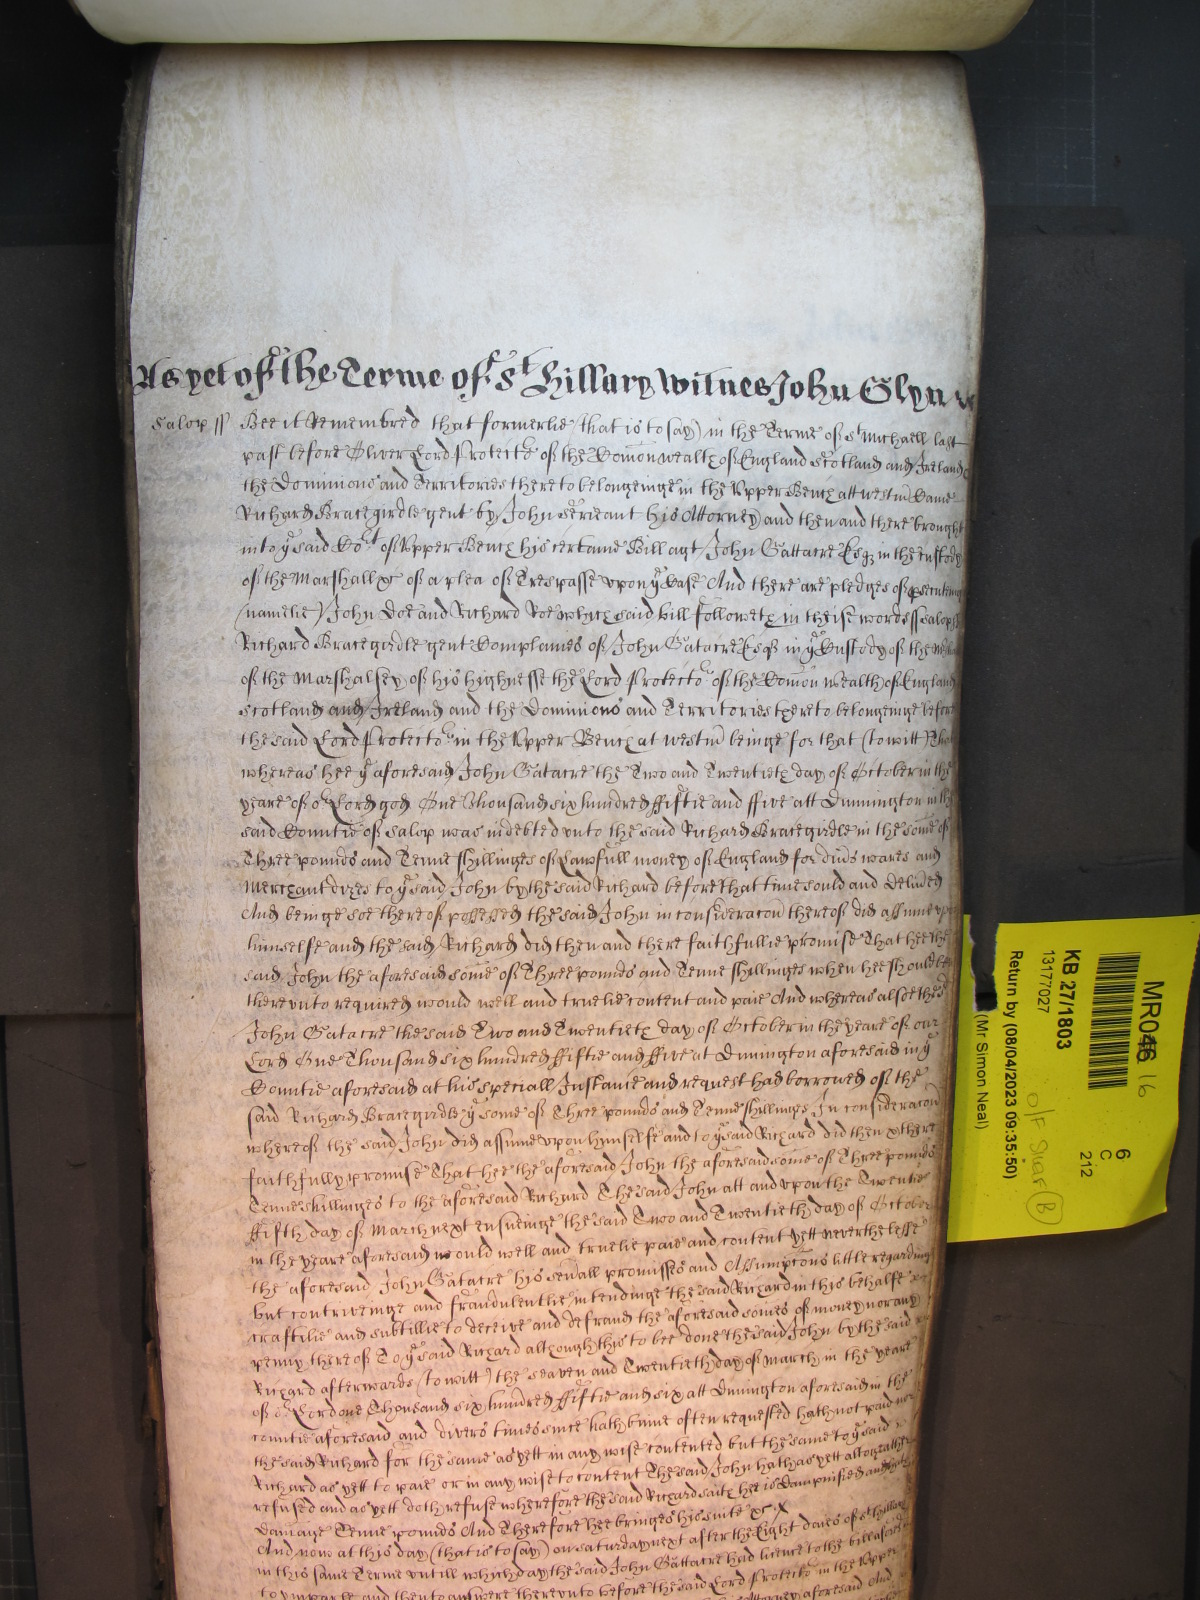 As yet of the Terme of St Hillary Witnes John Glyn
Salop ss Bee it Remembred that formerlie (that is to say) in the Terme of St Michaell last
past before Oliver Lord Protector of the Comon wealth of England Scotland and Ireland
the Dominions and Territories thereto belongeinge in the Upper Bench att westm Came
Richard Bracegirdle gent by John Serieant his Attorney and then and there brought
into ye said Cort of Upper Bench his certaine Bill agt John Gattacre Esqr in the custody
of the Marshall &c of a plea of Trespasse upon ye Case And there are pledges of prosecuting
(namelie) John Doe and Richard Roe which said bill followeth in theise words ss Salop ss
Richard Bracegirdle gent Complaines of John Gatacre Esqr in ye Custody of the
of the Marshalsey of his highnesse the Lord Protector of the Comon wealth of England
Scotland and Ireland and the Dominions and Territories thereto belongeinge before
the said Lord Protector in the Upper Bench at westm beinge for that (to witt) That
whereas hee ye aforesaid John Gatacre the Two and Twentieth day of October in the
yeare of or Lord god One Thousand six hundred ffiftie and ffive att Dunnington in the
said Countie of Salop was indebted unto the said Richard Bracegirdle in the some of
Three pounds and Tenne shillinges of Lawfull money of England for divs wares and
Merchandizes to ye said John by the said Richard before that time sould and deliued
And beinge soe thereof possessed the said John in consideracon thereof did assume upon
himselfe and the said Richard did then and there faithfullie promise That hee the
said John the aforesaid some of Three pounds and Tenne shillinges when hee should be
thereunto required would well and truelie content and paie And whereas alsoe the sd
John Gatacre the said Two and Twentieth day of October in the yeare of our
Lord One Thousand six hundred ffiftie and ffive at Dunnington aforesaid in ye
Countie aforesaid at his speciall Instance and request had borrowed of the
said Richard Bracegirdle ye some of Three pounds and Tenne shillinges In consideracon
whereof the said John did assume upon himselfe and to ye said Richard did then & there
faithfully promise That hee the aforesaid John the aforesaid some of Three pounds
Tenne shillinges to the aforesaid Richard The said John att and upon the Twentie
ffifth day of March next ensueinge the said Two and Twentieth day of October
in the yeare aforesaid would well and truelie paie and content yett neverthelesse
the aforesaid John Gatacre his seuall promisses and Assumpcons little regarding
but contriveinge and fraudulentlie intendinge the said Richard in this behalfe
craftilie and subtillie to deceive and defraud the aforesaid somes of money nor any
penny thereof To ye said Richard although this to bee done the said John by the said
Richard afterwards (to witt) the seaven and Twentieth day of March in the yeare
of or Lord one Thousand six hundred ffiftie and six att Dunnington aforesaid in the
countie aforesaid and divers times since hath bine often requested hath not paid nor
the said Richard for the same as yett in any wise contented but the same to ye said
Richard as yett to paie or in any wise to content The said John hath as yett altogeather
refused and as yett doth refuse wherefore the said Richard saith hee is dampnified and
damage Tenne pounds And Therefore hee bringes his suite &c
And now at this day (that is to say) on saturday next after the Eight daies of St Hillary
in this same Terme untill which day the said John Gattacre had licence to the bill aforesd
to imparle and then to answere thereunto before the said Lord Protector in the Upper
Attorney aforesaid And
MR046 16
6
C
212
KB 27/1803
13177027
Return by (08/04/2023 09:35:50)
(Mr Simon Neal)
O/F Staff B